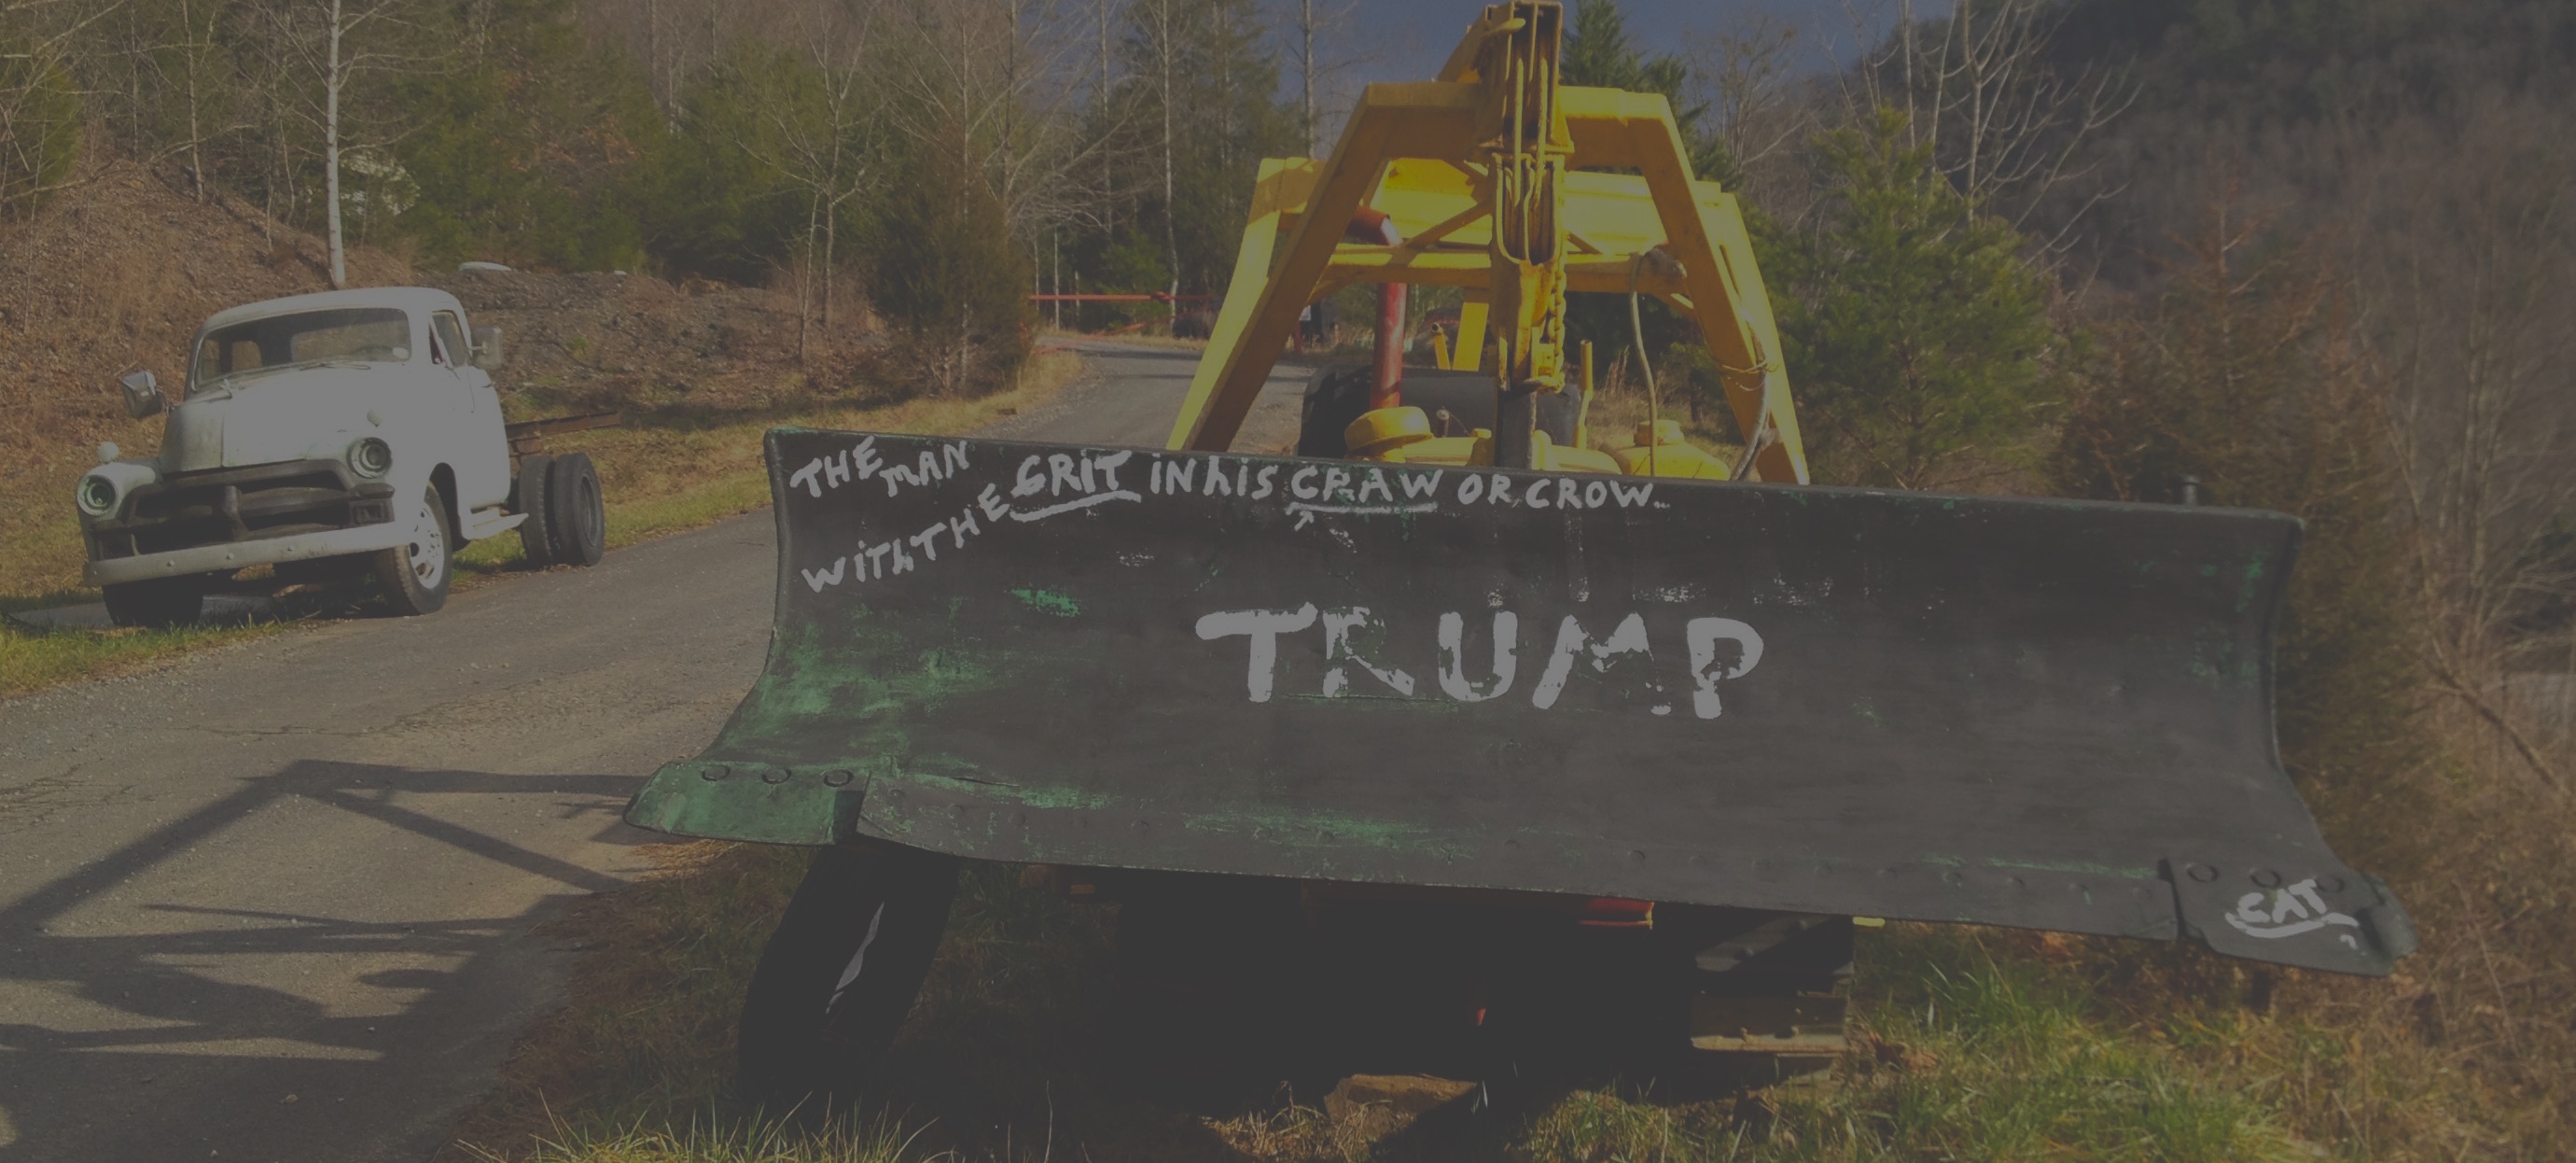 THE MAN
WITH THE GRIT IN hIS CRAW OR CROW..
TRUMP
CAT